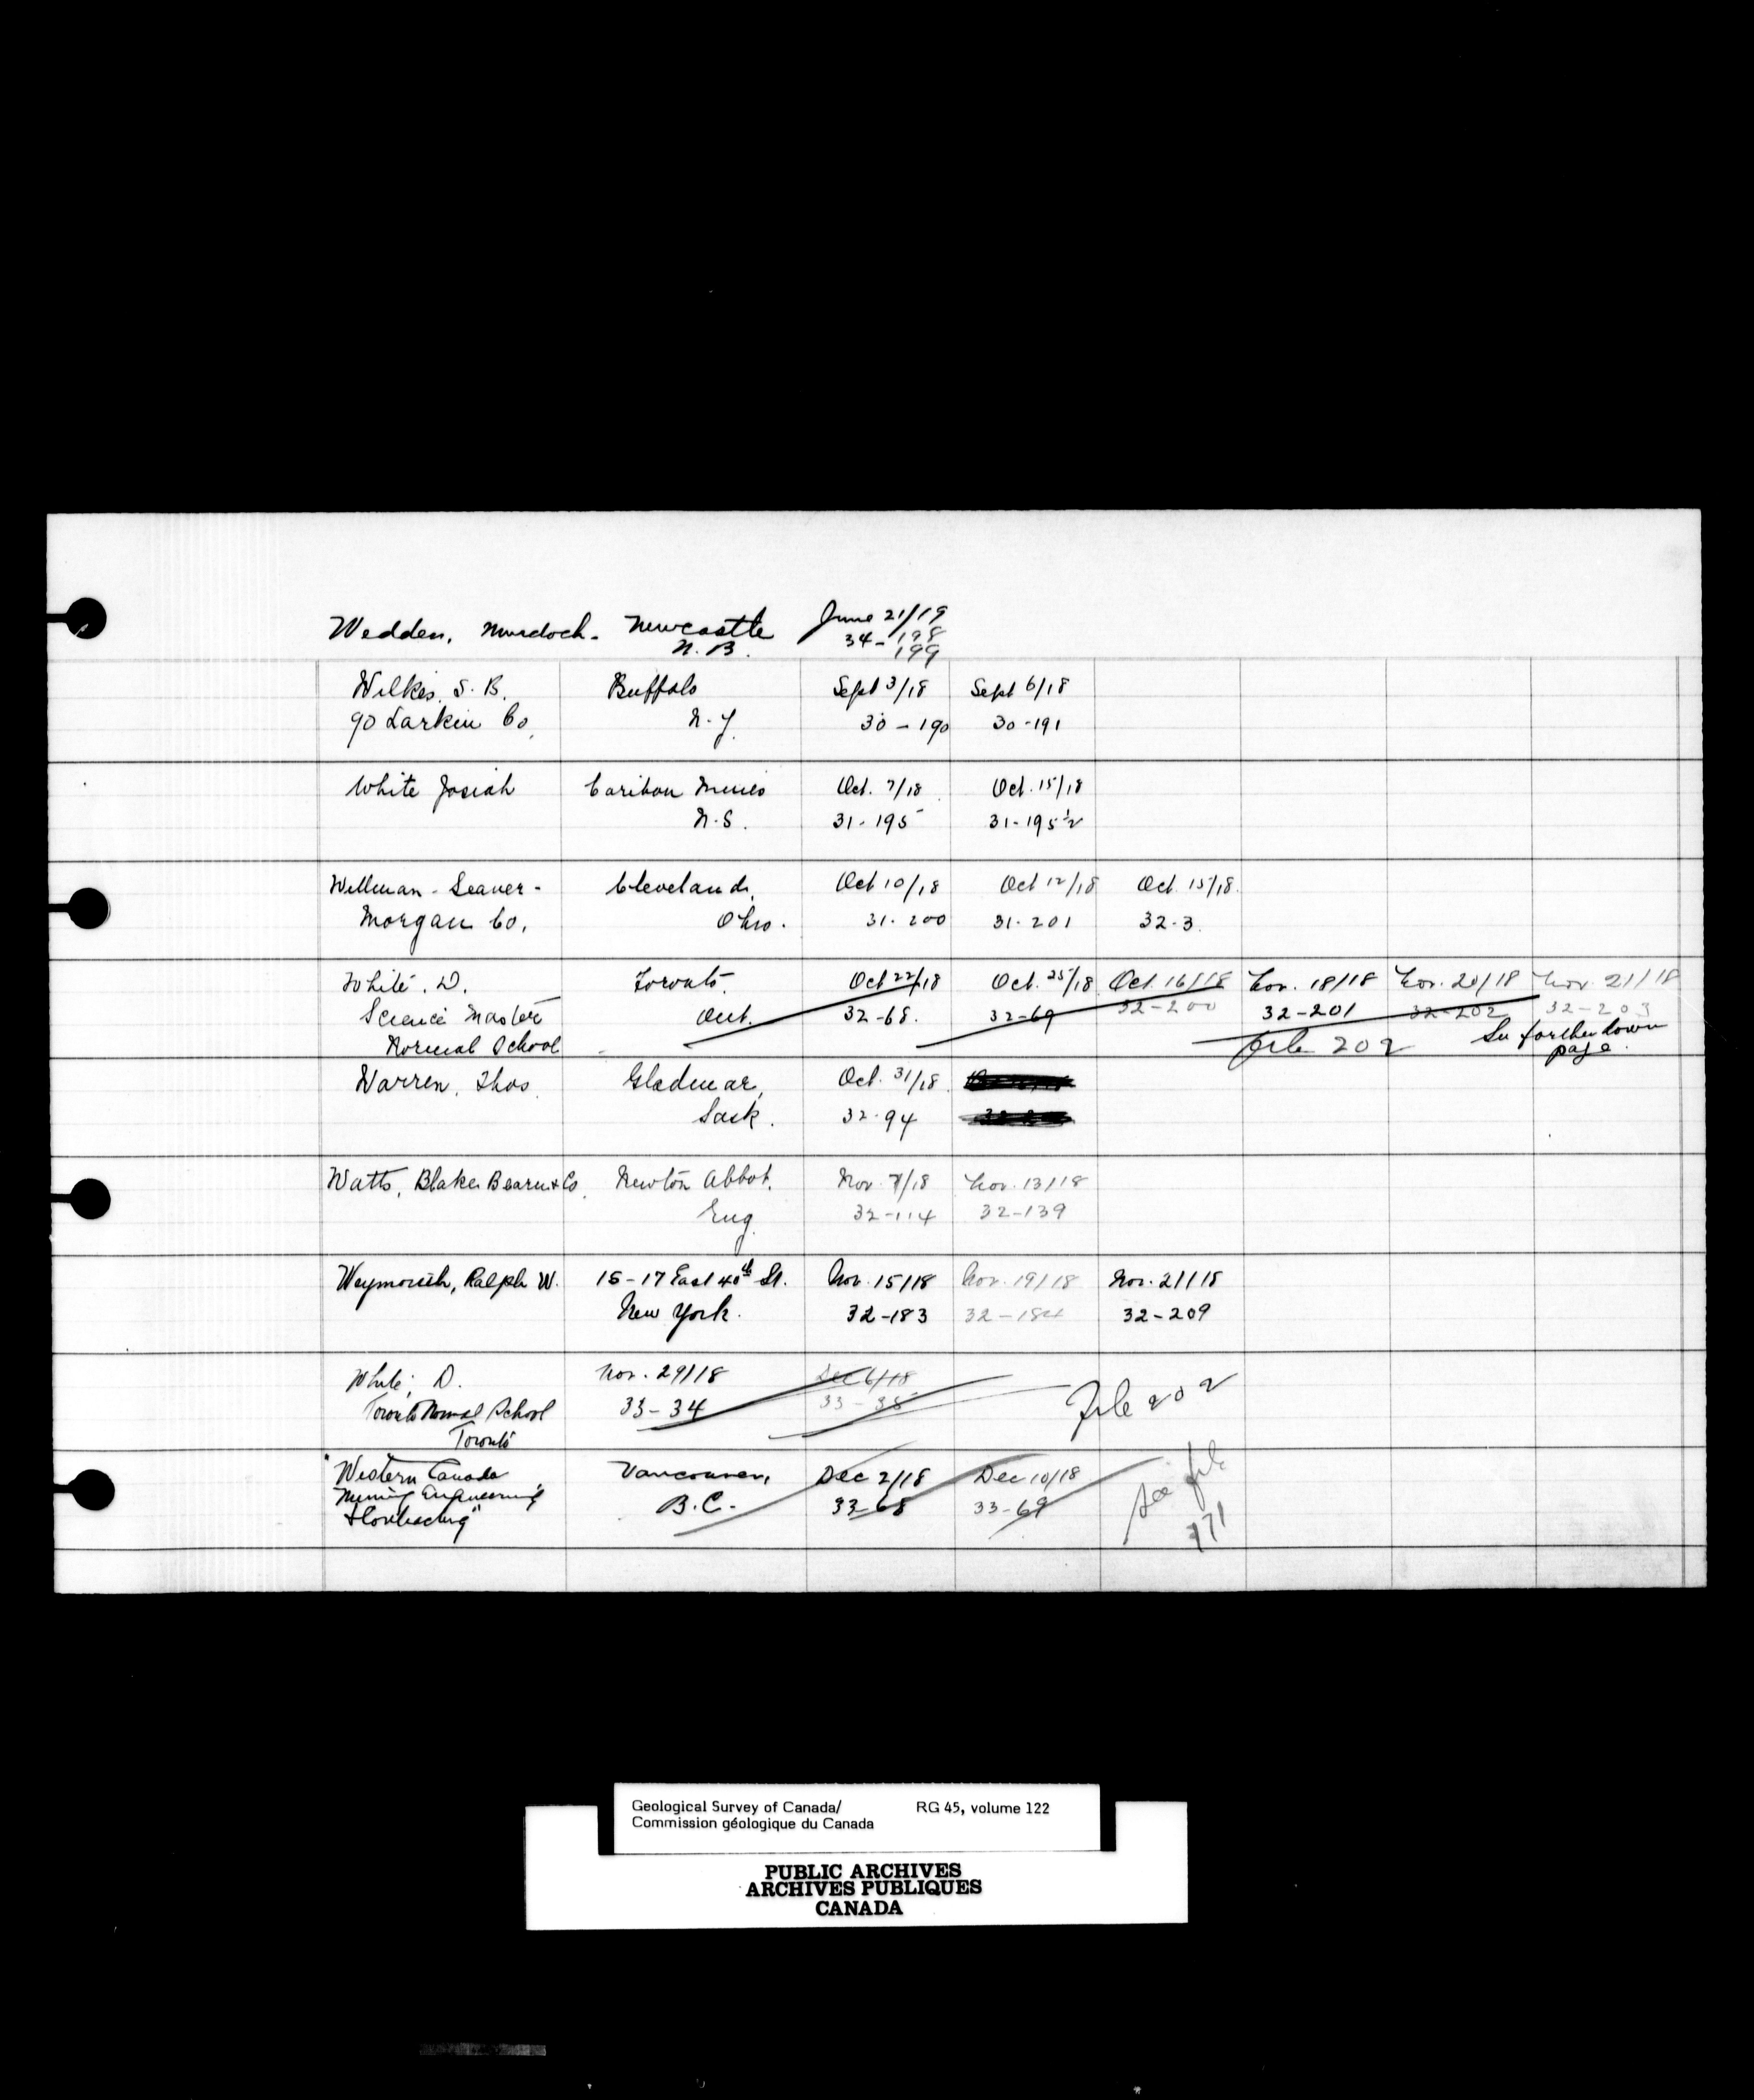 Wedden, Murdoch. Newcastle June 21/19
N. B. 34-198
199
Wilkes, S. B. Buffalo Sept 3/18 Sept 6/18
90 Larkin Co, N.Y. 30-190 30-191
White Josiah Caribou Mines Oct. 7/18 Oct. 15/18
N.S. 31-195 31-195½
Wellman-Seaver- Cleveland, Oct 10/18 Oct 12/18 Oct. 15/18.
Morgan Co, Ohio. 31-200 31-201 32-3.
White, D. Toronto, Oct 22/18 Oct. 25/18 Oct. 16/18 Nov. 18/18 Nov. 20/18 Nov. 21/18
Science Master Ont. 32-68. 32-69 32-200 32-201 32-202 32-203
Normal School file 202 See farther down
page.
Warren, Thos. Gladmar, Oct. 31/18
Sask. 32-94
Watts, Blake, Bearne & Co. Newton Abbot, Nov. 7/18 Nov. 13/18
Eng. 32-114 32-139
Weymouth, Ralph W. 15-17 East 40th St. Nov. 15/18 Nov. 19/18 Nov. 21/18
New York. 32-183 32-184 32-209
White, D. Nov. 29/18 Dec 6/18
Toronto Normal School 33-34 33-35 File 202
Toronto
"Western Canada Vancouver, Dec 2/18 Dec 10/18 See file
Mining Engineering B.C. 33-68 33-69 171
& Contracting"
Geological Survey of Canada/ RG 45, volume 122
Commission géologique du Canada
PUBLIC ARCHIVES
ARCHIVES PUBLIQUES
CANADA